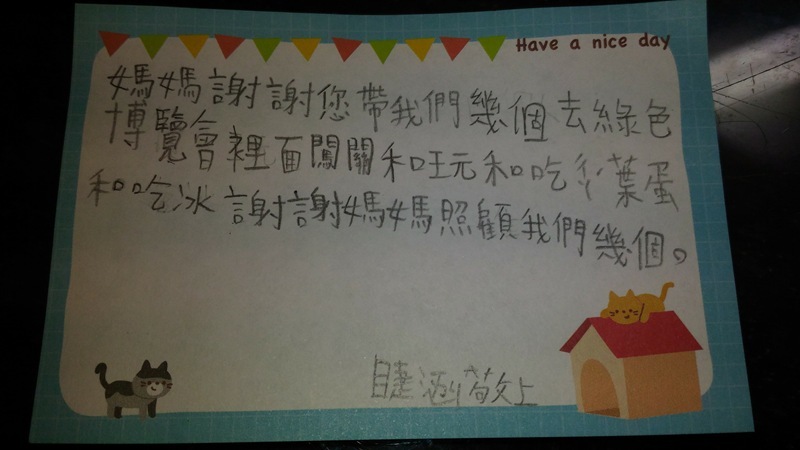 Have a nice day
媽媽謝謝您帶我們幾個去綠色
博覽會裡面闖關和玩和吃茶葉蛋
和吃冰謝謝媽媽照顧我們幾個。
睫涵敬上